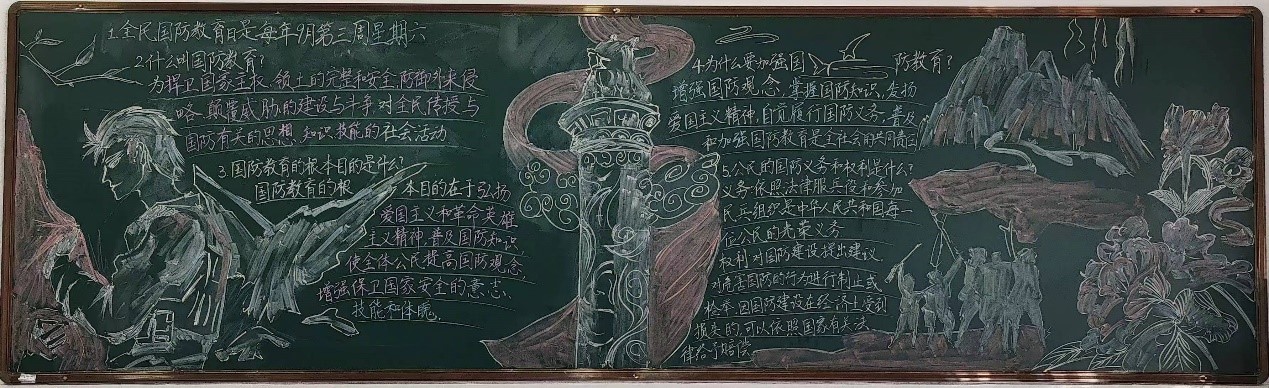 1.全民国防教育日是每年9月第三周星期六
2.什么叫国防教育?
为捍卫国家主权、领土的完整和安全,防御外来侵
略、颠覆威胁的建设与斗争,对全民传授与
国防有关的思想、知识、技能的社会活动
3.国防教育的根本目的是什么?
国防教育的根
本目的在于弘扬
爱国主义和革命英雄
主义精神,普及国防知识
使全体公民提高国防观念,
增强保卫国家安全的意志、
技能和体魄。
4.为什么要加强国 防教育?
增强国防观念,掌握国防知识,发扬
爱国主义精神,自觉履行国防义务,普及
和加强国防教育是全社会的共同责任
5.公民的国防义务和权利是什么?
义务:依照法律服兵役和参加
民兵组织是中华人民共和国每一
位公民的光荣义务
权利:对国防建设提出建议
对危害国防的行为进行制止或
检举,因国防建设在经济上受到
损失的,可以依照国家有关法
律给予赔偿